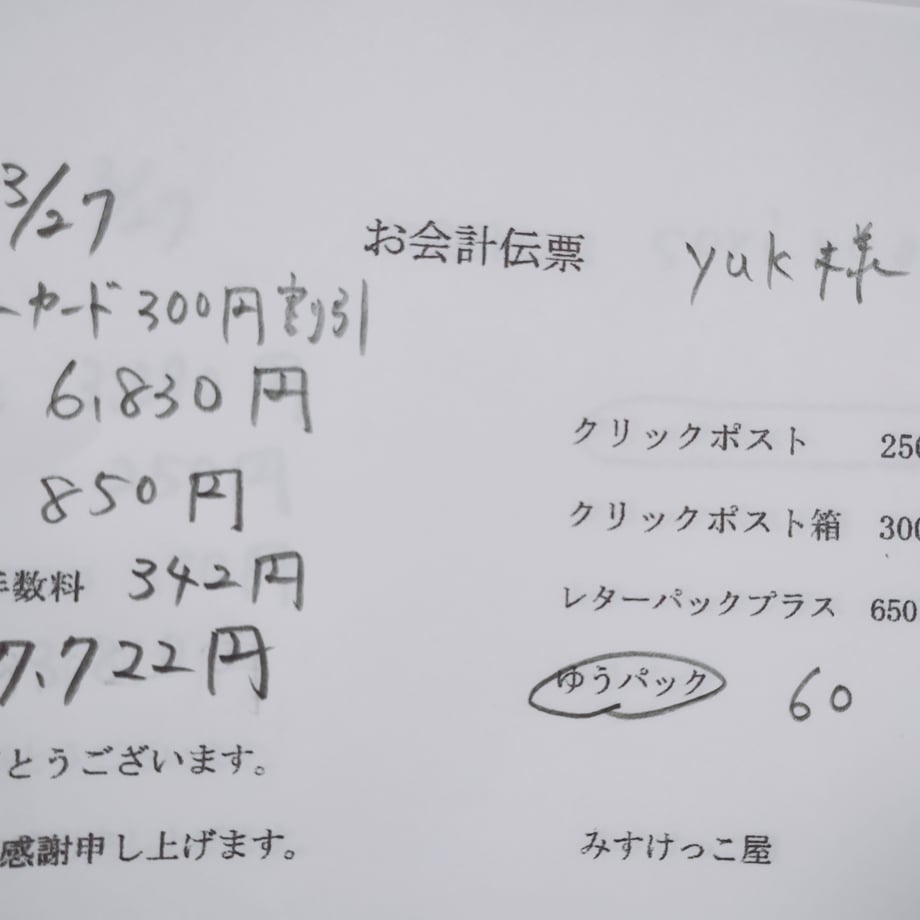 3/27
お会計伝票
yuk様
ーカード 300円割引
6,830円
850円
手数料 342円
7,722円
とうございます。
感謝申し上げます。
クリックポスト 250
クリックポスト箱 300
レターパックプラス 650
ゆうパック 60
みすけっこ屋